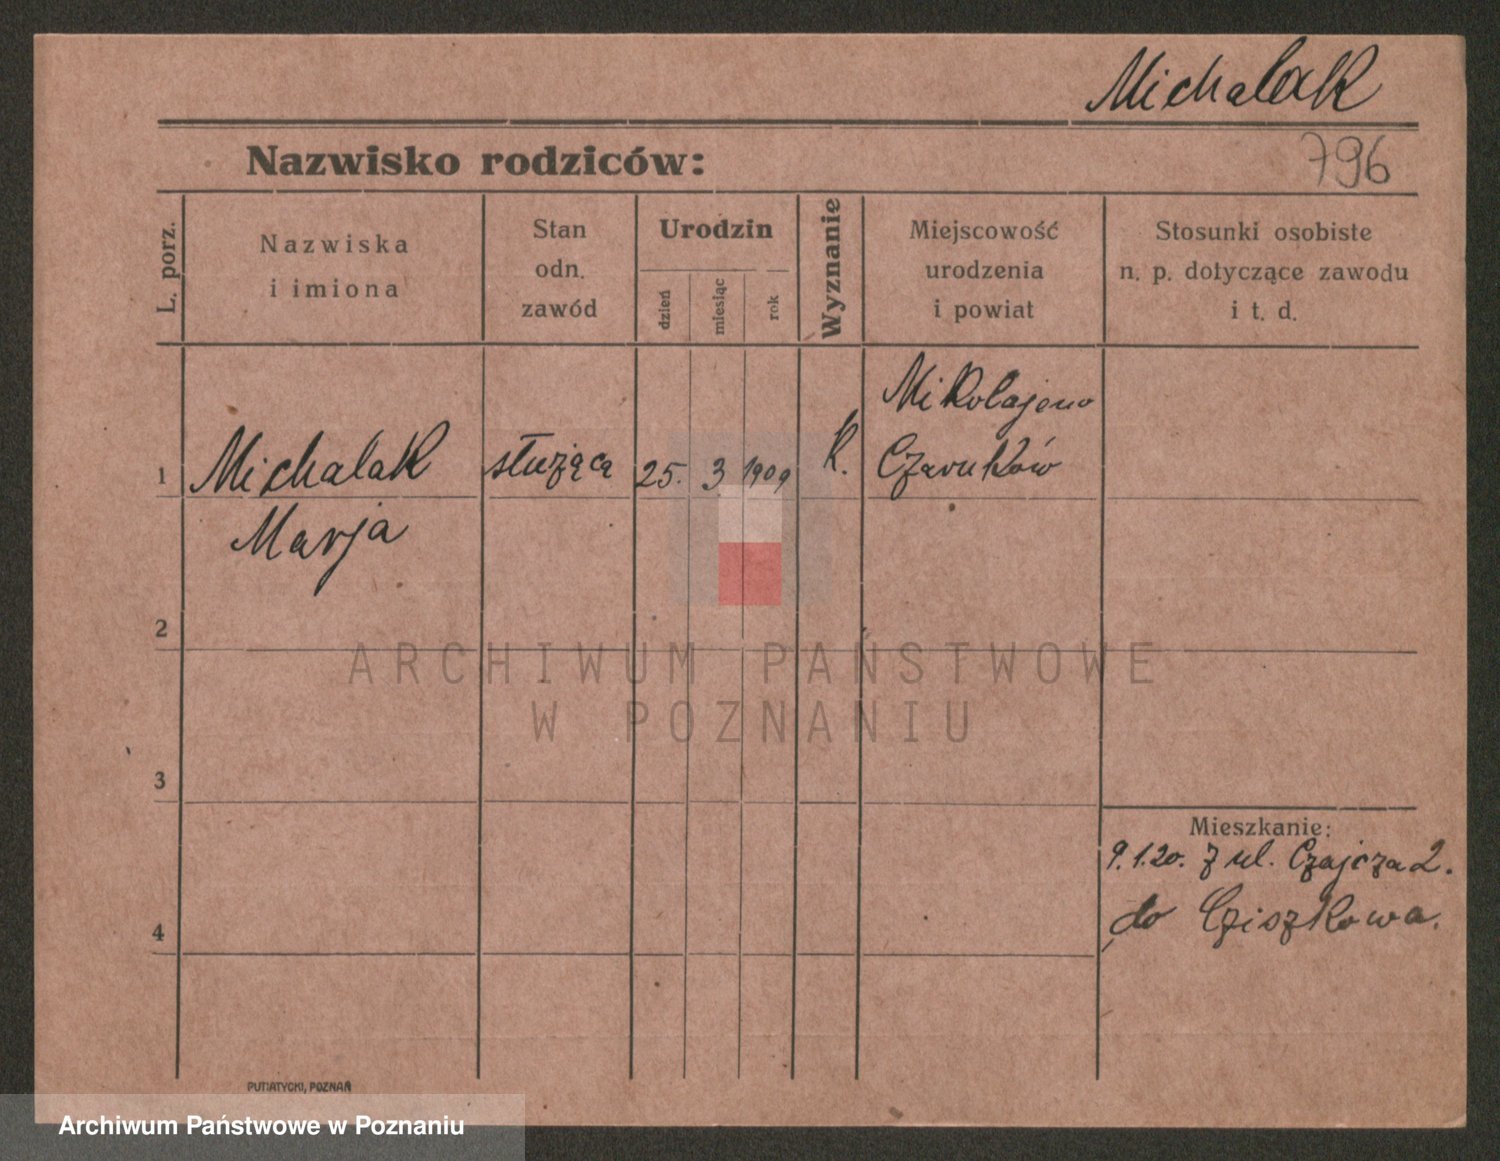 Michalak
Nazwisko rodziców:
796
L. porz.
Nazwiska
i imiona
Stan
odn.
zawód
Urodzin
dzień
miesiąc
rok
Wyznanie
Miejscowość
urodzenia
i powiat
Stosunki osobiste
n. p. dotyczące zawodu
i t. d.
Mikołajewo
1 Michalak służąca 25. 3 1909 k. Czarnków
Marja
2
ARCHIWUM PAŃSTWOWE
W POZNANIU
3
Mieszkanie:
9.1.20. z ul. Czajcza 2.
4 do Cziszkowa.
PUTIATYCKI, POZNAŃ
Archiwum Państwowe w Poznaniu